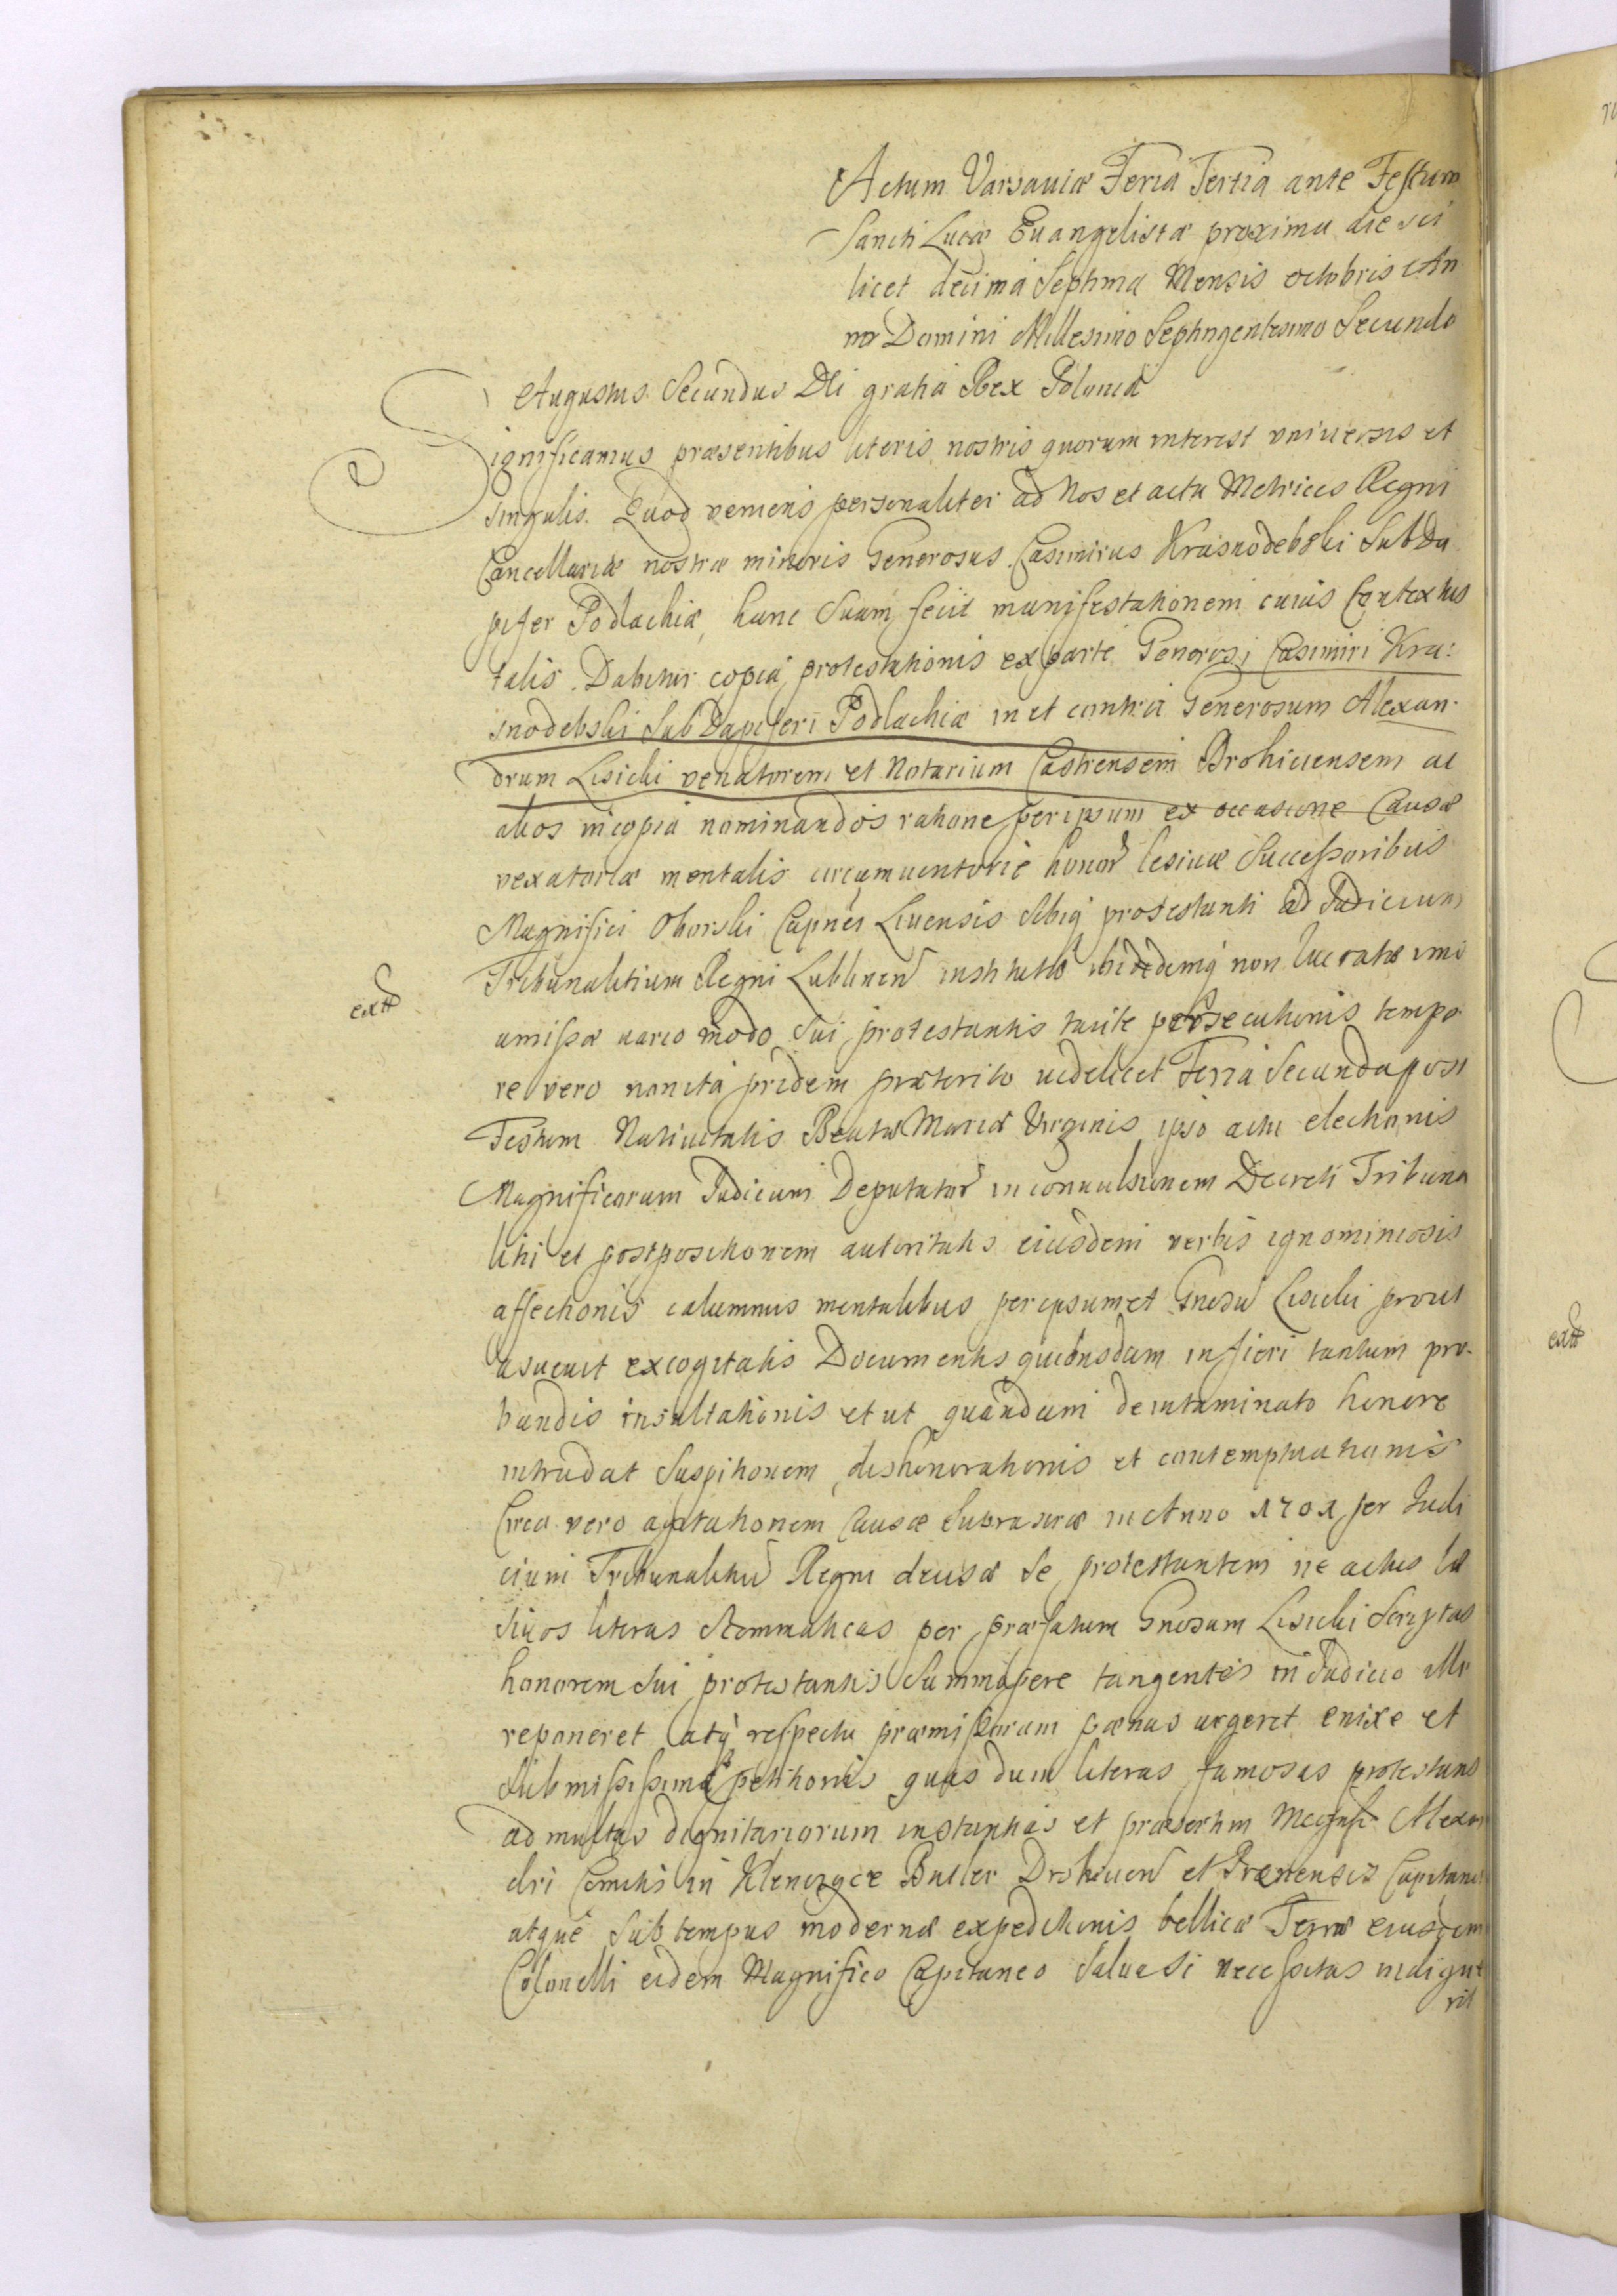 Actum Varsaviæ Feria Tertia ante Festum
Sancti Lucæ Euangelistæ proxima die sci
licet decima Septima Mensis octobris An
no Domini Millesimo Septingentesimo Secundo
Augustus Secundus Dei gratia Rex Poloniæ
Significamus præsentibus literis nostris quorum interest vniuersis et
singulis. Quod veniens personaliter ad Nos et acta Metrices Regni
Cancellariæ nostræ minoris Generosus Casimirus Krasnodebski SubDa
pifer Podlachiæ, hanc Suam fecit manifestationem cuius Contextus
talis. Dabitur copia protestationis ex parte Generosi Casimiri Kra:
snodebski SubDapiferi Podlachiæ in et contra Generosum Alexan
drum Lisicki venatorem et Notarium Castrensem Drohicensem ac
alios in copia nominandos ratione per ipsum ex occasione Causæ
vexatoriæ mentalis circumuentoriè honor lesiuæ Successoribus
Magnifici Oborski Capnei Liuensis Sibiq protestanti ad Judicium
Tribunalitium Regni Lublinen institutæ ibidemq non lucratæ imo
amissæ vario modo Sui protestantis tacite persecutionis tempo
re vero non ita pridem præterito videlicet Feria Secunda post
Festum Natiuitatis Beatæ Mariæ Virginis ipso actu electionis
Magnificorum Judicum Deputator in conuulsionem Decreti Tribuna
litii et postpositionem autoritatis eiusdem verbis ignominiosis
affectionis calumniis mentalibus per ipsummet Gnosu Lisicki prout
asueuit excogitatis Documentis quibusdam in fieri tantum pro
bandis insultationis et ut quandam de intaminato honore
intrudat Suspitionem, deshonorationis et contemptuationis
Circa vero agitationem Causæ Suprascriæ in Anno 1701 per Judi
cium Tribunalitiu Regni decisæ Se protestantem ne actus læ
siuos literas Stemmaticas per præfatum Gnosum Lisicki Scriptas
honorem Sui protestantis Summopere tangentes in Judicio illo
reponeret atq respectu præmissorum pænas urgeret enixe et
Submississimæ petitionis quas dum literas famosas protestans
ad multas dignitariorum instantias et præsertim Magnfi Alexan
dri Comitis in Butler Drohicen et Prænensis Capitanei
atque Sub tempus modernæ expeditionis bellicæ Terræ eiusdem
Colonelli eidem Magnifico Capitaneo Salua Si necessitas indigue
rit
extt
extt